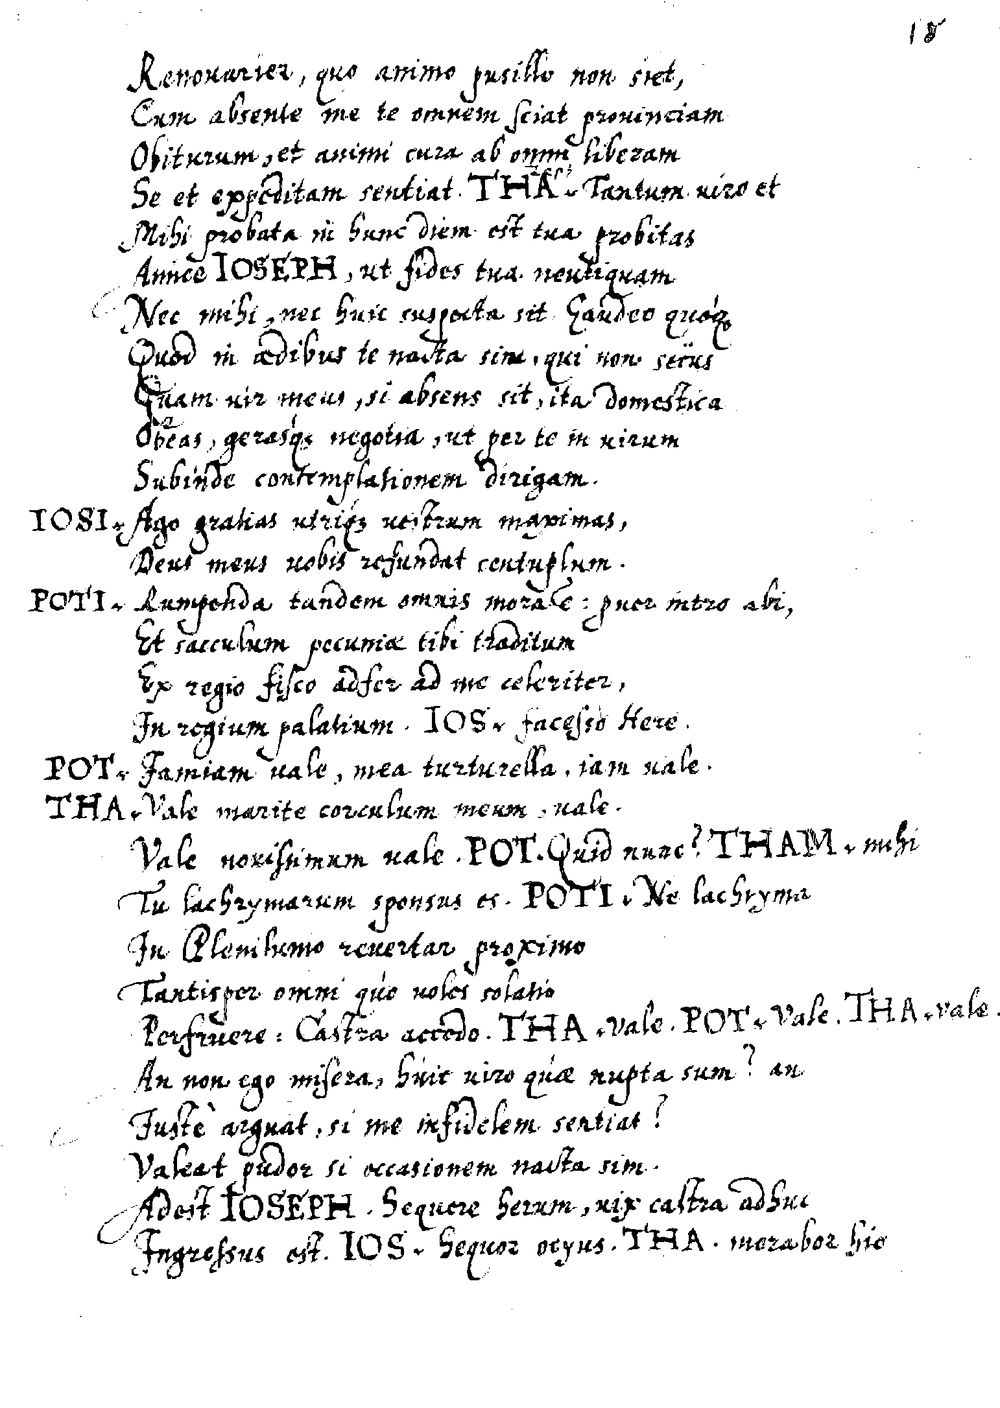 18
Renouarier, quo animo pusillo non siet,
Cum absente me te omnem sciat prouinciam
Obiturum, et animi cura ab omni liberam
Se et expeditam sentiat. THA. Tantum uiro et
Mihi probata in hunc diem est tua probitas
Amice IOSEPH, ut fides tua neutiquam
Nec mihi, nec huic suspecta sit. Gaudeo quoq;
Quod in ædibus te nacta sim, qui non secius
Quam uir meus, si absens sit, ita domestica
Obeas, gerasq; negotia, ut per te in uirum
Subinde contemplationem dirigam.
IOSI. Ago gratias utriq; uestrum maximas,
Deus meus uobis refundat centuplum.
POTI. Rumpenda tandem omnis mora: puer intro abi,
Et sacculum pecuniæ tibi traditum
Ex regio fisco adfer ad me celeriter,
In regium palatium. IOS. facesso Here.
POT. Iamiam uale, mea turturella, iam uale.
THA. Vale marite corculum meum, uale.
Vale nouissimum uale. POT. Quid nunc? THAM. mihi
Tu lachrymarum sponsus es. POTI. Ne lachryma
In Plenilunio reuertar proximo
Tantisper omni quo uoles solatio
Perfruere: Castra accedo. THA. vale. POT. Vale. THA. vale.
An non ego misera, huic uiro quæ nupta sum? an
Iustè arguat, si me infidelem sentiat?
Valeat pudor si occasionem nacta sim.
Adest IOSEPH. Sequere herum, uix castra adhuc
Ingressus est. IOS. Sequor ocyus. THA. morabor hic